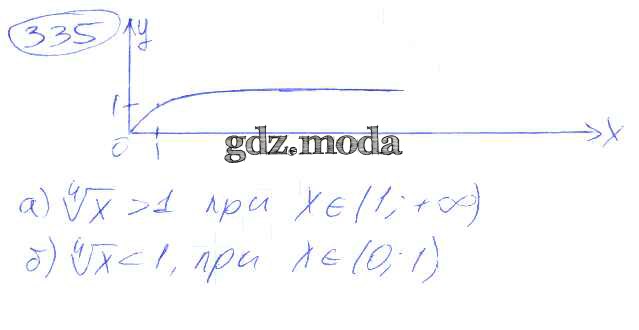 335
y
1
0 1 x
gdz.moda
а) ∜x > 1 при x ∈ (1; +∞)
б) ∜x < 1, при x ∈ (0; 1)